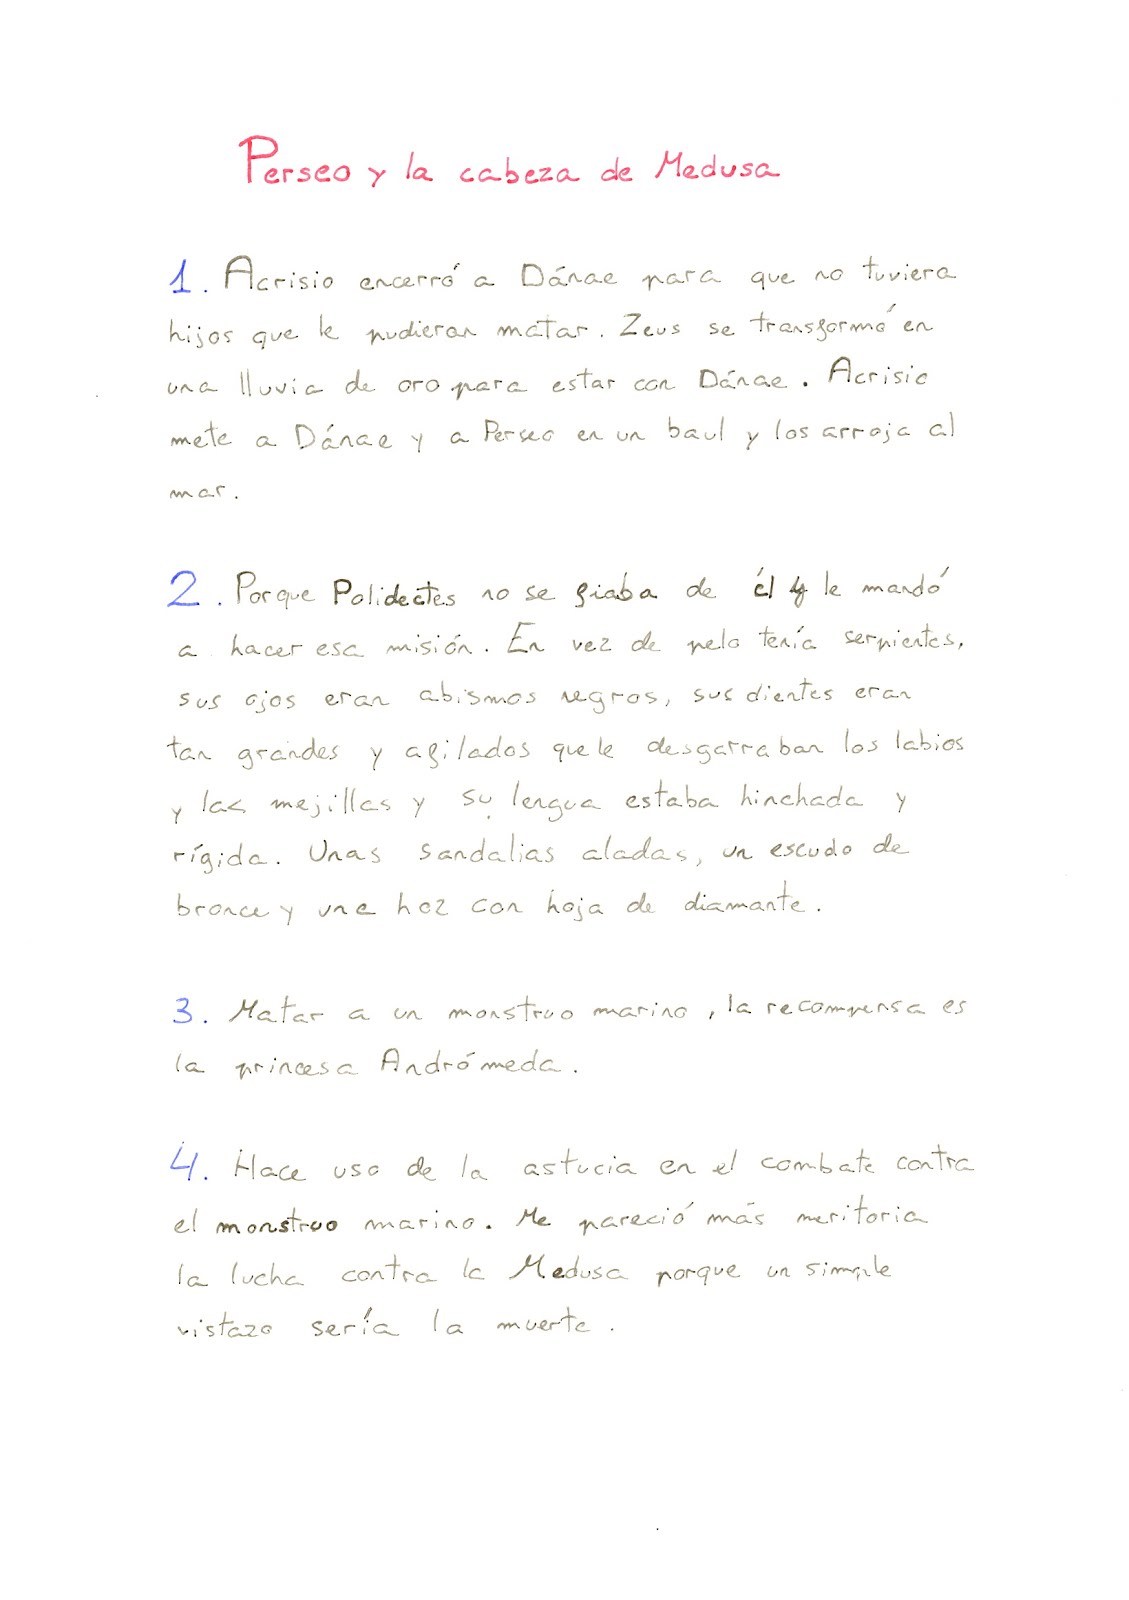 Perseo y la cabeza de Medusa
1. Acrisio encerró a Dánae para que no tuviera
hijos que le pudieran matar. Zeus se transformó en
una lluvia de oro para estar con Dánae. Acrisio
mete a Dánae y a Perseo en un baul y los arroja al
mar.
2. Porque Polidectes no se fiaba de él y le mandó
a hacer esa misión. En vez de pelo tenía serpientes,
sus ojos eran abismos negros, sus dientes eran
tan grandes y afilados que le desgarraban los labios
y las mejillas y su lengua estaba hinchada y
rígida. Unas sandalias aladas, un escudo de
bronce y una hoz con hoja de diamante.
3. Matar a un monstruo marino, la recompensa es
la princesa Andrómeda.
4. Hace uso de la astucia en el combate contra
el monstruo marino. Me pareció más meritoria
la lucha contra la Medusa porque un simple
vistazo sería la muerte.